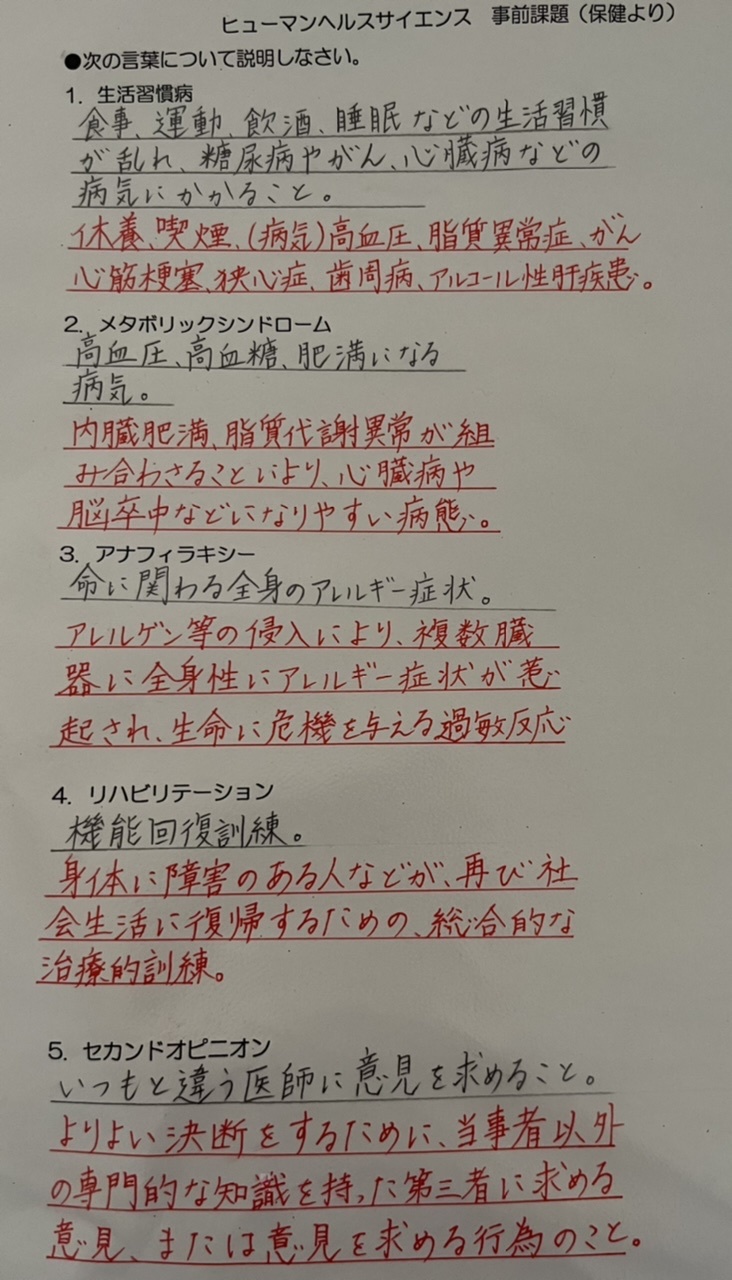 ヒューマンヘルスサイエンス 事前課題（保健より）
●次の言葉について説明しなさい。
1. 生活習慣病
食事、運動、飲酒、睡眠などの生活習慣
が乱れ、糖尿病やがん、心臓病などの
病気にかかること。
休養、喫煙、(病気)高血圧、脂質異常症、がん
心筋梗塞、狭心症、歯周病、アルコール性肝疾患。
2. メタボリックシンドローム
高血圧、高血糖、肥満になる
病気。
内臓肥満、脂質代謝異常が組
み合わさることにより、心臓病や
脳卒中などになりやすい病態。
3. アナフィラキシー
命に関わる全身のアレルギー症状。
アレルゲン等の侵入により、複数臓
器に全身性にアレルギー症状が惹
起され、生命に危機を与える過敏反応
4. リハビリテーション
機能回復訓練。
身体に障害のある人などが、再び社
会生活に復帰するための、総合的な
治療的訓練。
5. セカンドオピニオン
いつもと違う医師に意見を求めること。
よりよい決断をするために、当事者以外
の専門的な知識を持った第三者に求める
意見、または意見を求める行為のこと。